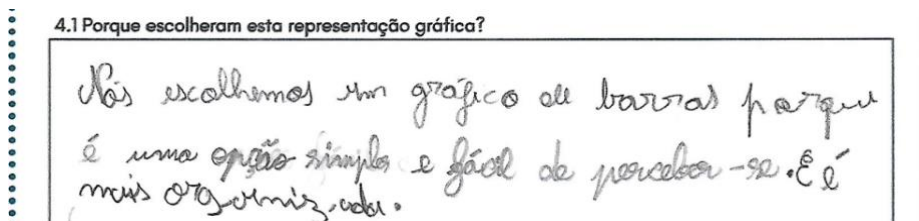 4.1 Porque escolheram esta representação gráfica?
Nós escolhemos um gráfico de barras porque
é uma opção simples e fácil de perceber-se. E é
mais organizada.